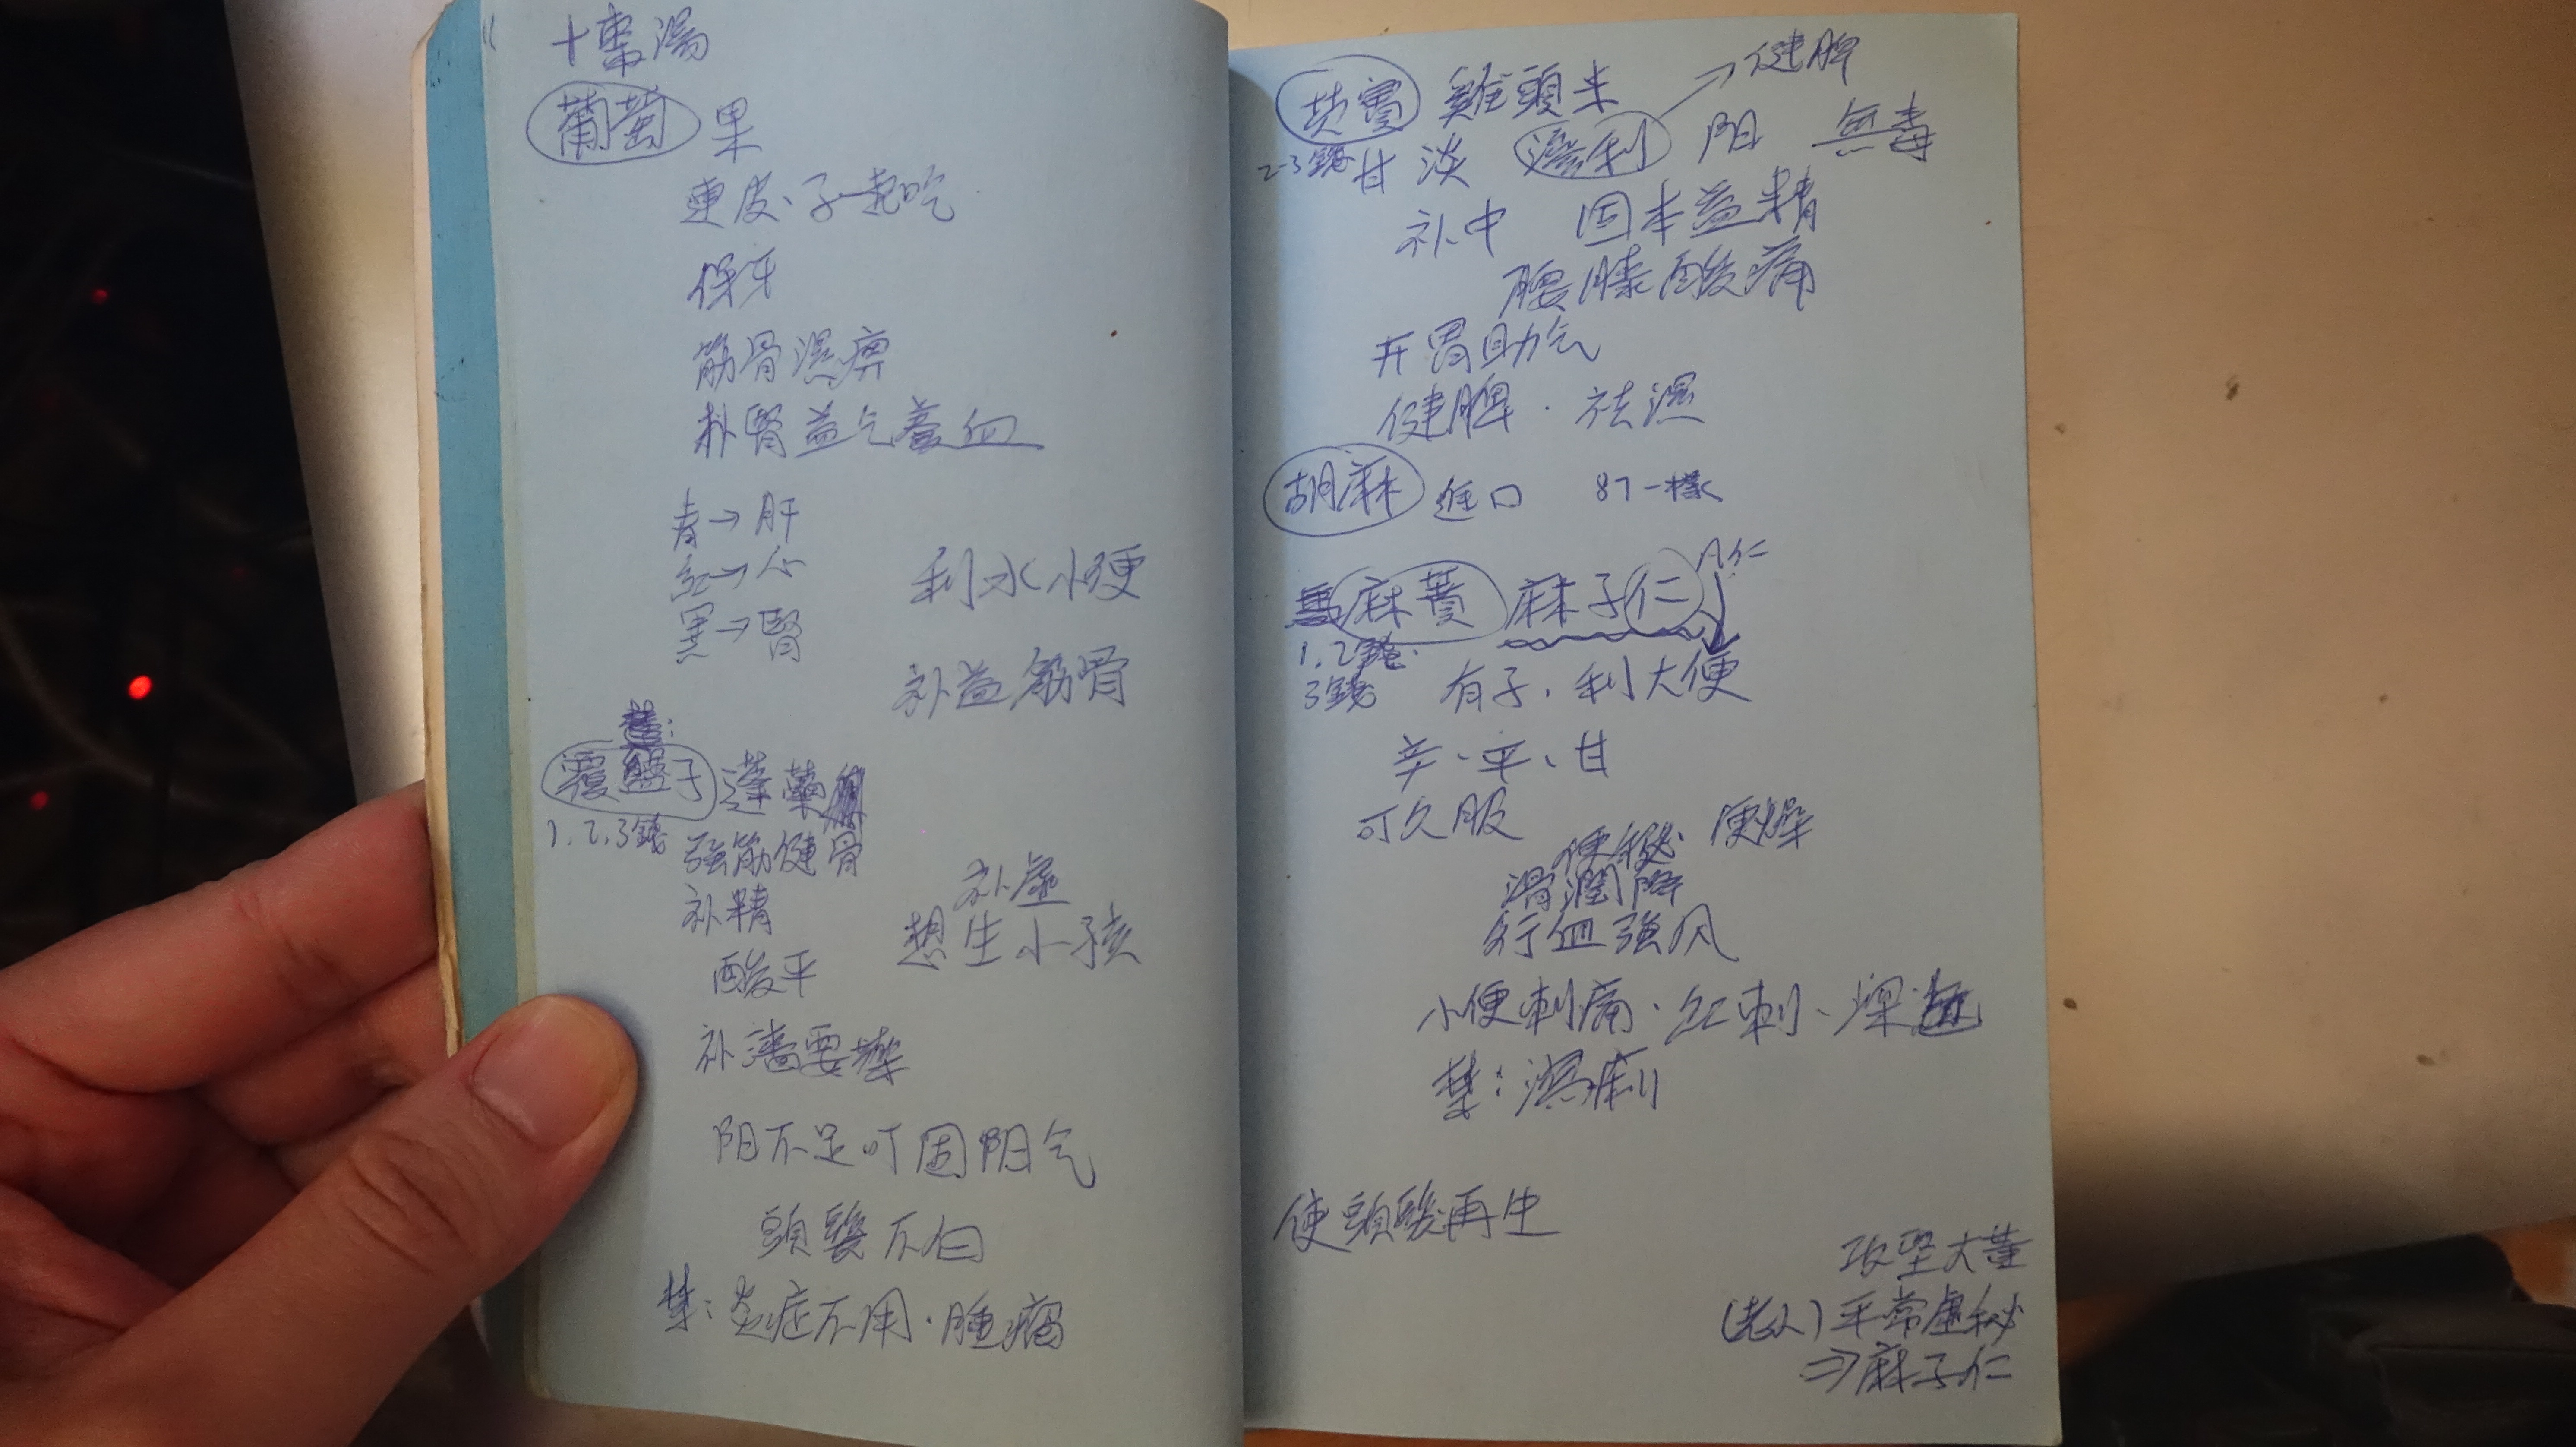 十棗湯
葡萄 果
連皮、子一起吃
保牙
筋骨濕痹
补腎益气養血
青→肝
紅→心
黑→腎
利水小便
补益筋骨
覆盤子 蓬蘽
1、2、3錢
強筋健骨
补精
酸平
补虛
想生小孩
阳不足可固阳气
頭髮不白
禁:炎症不用·腫瘤
芡實 雞頭米 →健脾
2-3錢 甘 淡 滲利 阳 無毒
补中 固本益精
腰膝酸痛
开胃助气
健脾·祛濕
胡麻 進口 87一樣
麻蕡 麻子仁
1、2錢
3錢
有子、利大便
辛、平、甘
可久服
便秘 便燥
滑潤降
行血強風
小便刺痛、紅刺、深
禁:濕痢
使頭髮再生
攻堅大黃
(老人)平常虛秘
⇒麻子仁